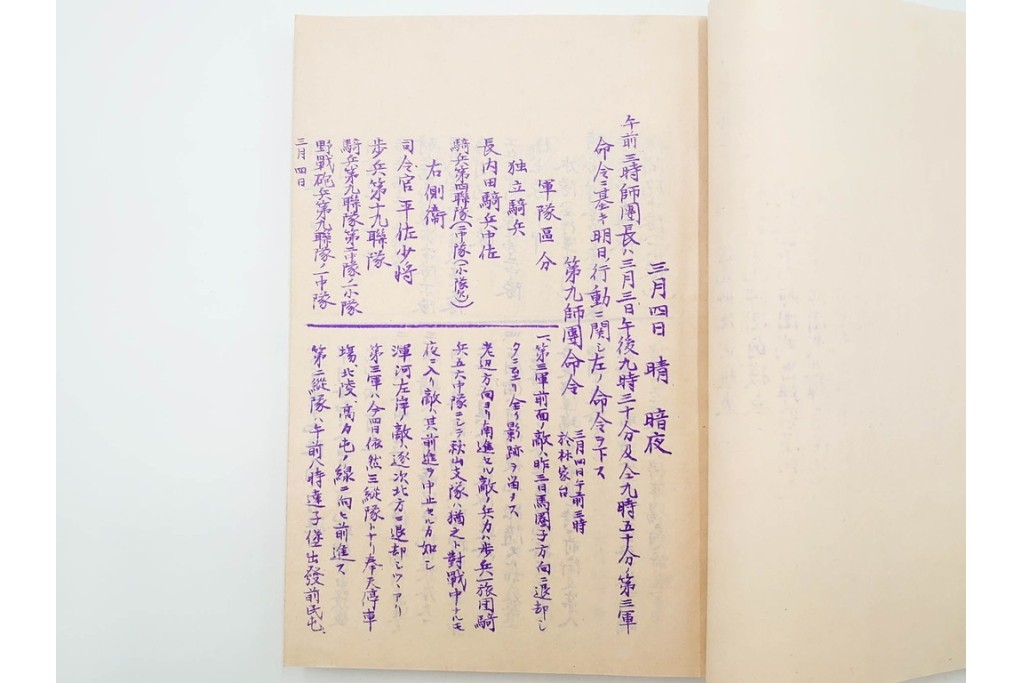 三月四日 晴 暗夜
午前三時師團長ハ三月三日午後九時三十分及仝九時五十分ノ第三軍
命令ニ基キ明日ノ行動ニ関シ左ノ命令ヲ下ス
第九師團命令 三月四日午前三時
於林家台
軍隊區分
独立騎兵
長内田騎兵中佐
騎兵第四聯隊(二中隊(一小隊欠))
右側衞
司令官平佐少将
歩兵第十九聯隊
騎兵第九聯隊第二中隊ノ一小隊
野戰砲兵第九聯隊ノ一中隊
三月四日
一、第三軍前面ノ敵ハ昨三日馬圏子方向ニ退却シ
タニ至リ全ク影跡ヲ留メス
老辺方向ヨリ南進セル敵ノ兵力ハ歩兵一旅団騎
兵五六中隊ニシテ秋山支隊ハ猶之ト對戰中ナルモ
夜ニ入リ敵ハ其前進ヲ中止セルカ如シ
渾河左岸ノ敵ハ逐次北方ニ退却シツヽアリ
第三軍ハ今四日依然三縦隊トナリ奉天停車
場、北陵、高力屯ノ線ニ向ヒ前進ス
第二縦隊ハ午前八時達子堡出發前民屯、